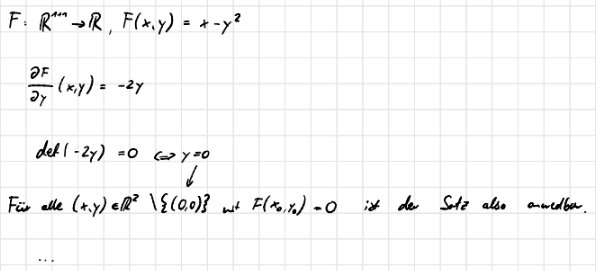 F: ℝ¹⁺¹ → ℝ, F(x,y) = x - y²
∂F/∂y (x,y) = -2y
det(-2y) = 0 ⇔ y = 0
↓
Für alle (x,y) ∈ ℝ² \ {(0,0)} mit F(x₀,y₀) = 0 ist der Satz also anwendbar.
...